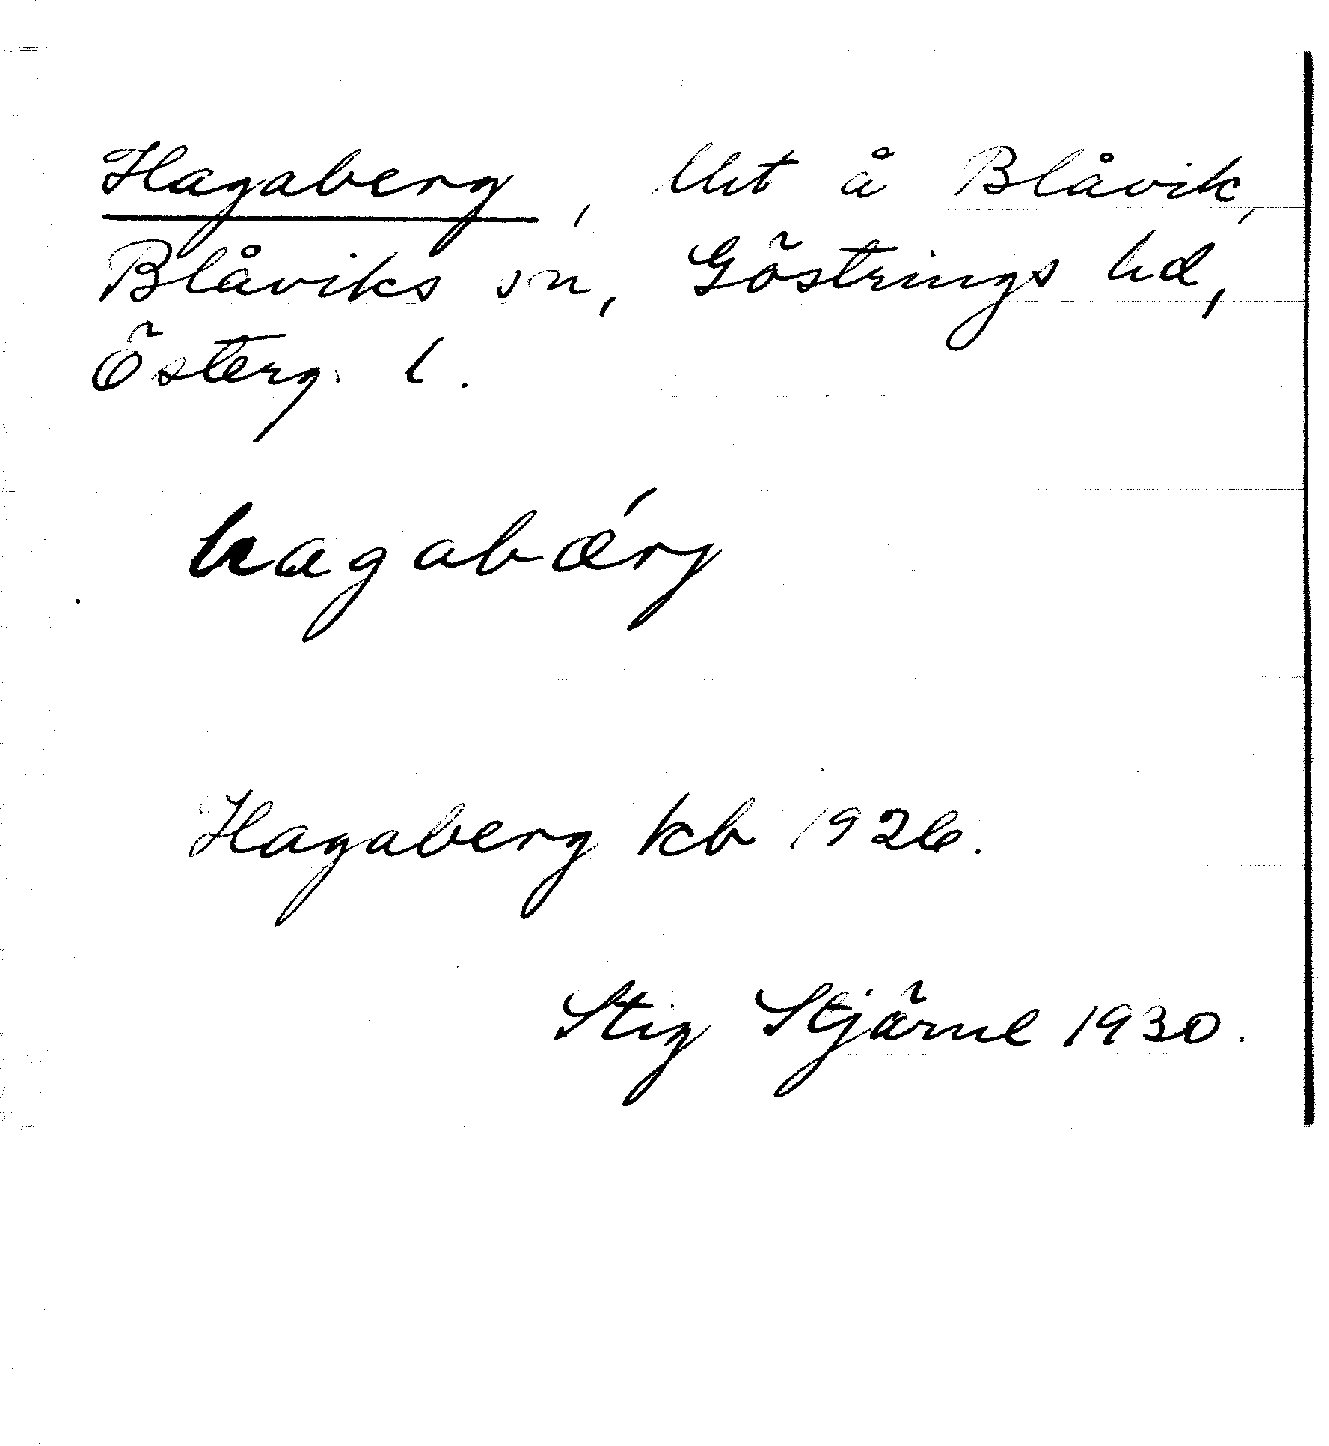 Hagaberg, lht å Blåvik,
Blåviks sn, Göstrings hd,
Österg. l.
hagabǽrj
Hagaberg kb 1926.
Stig Stjärne 1930.